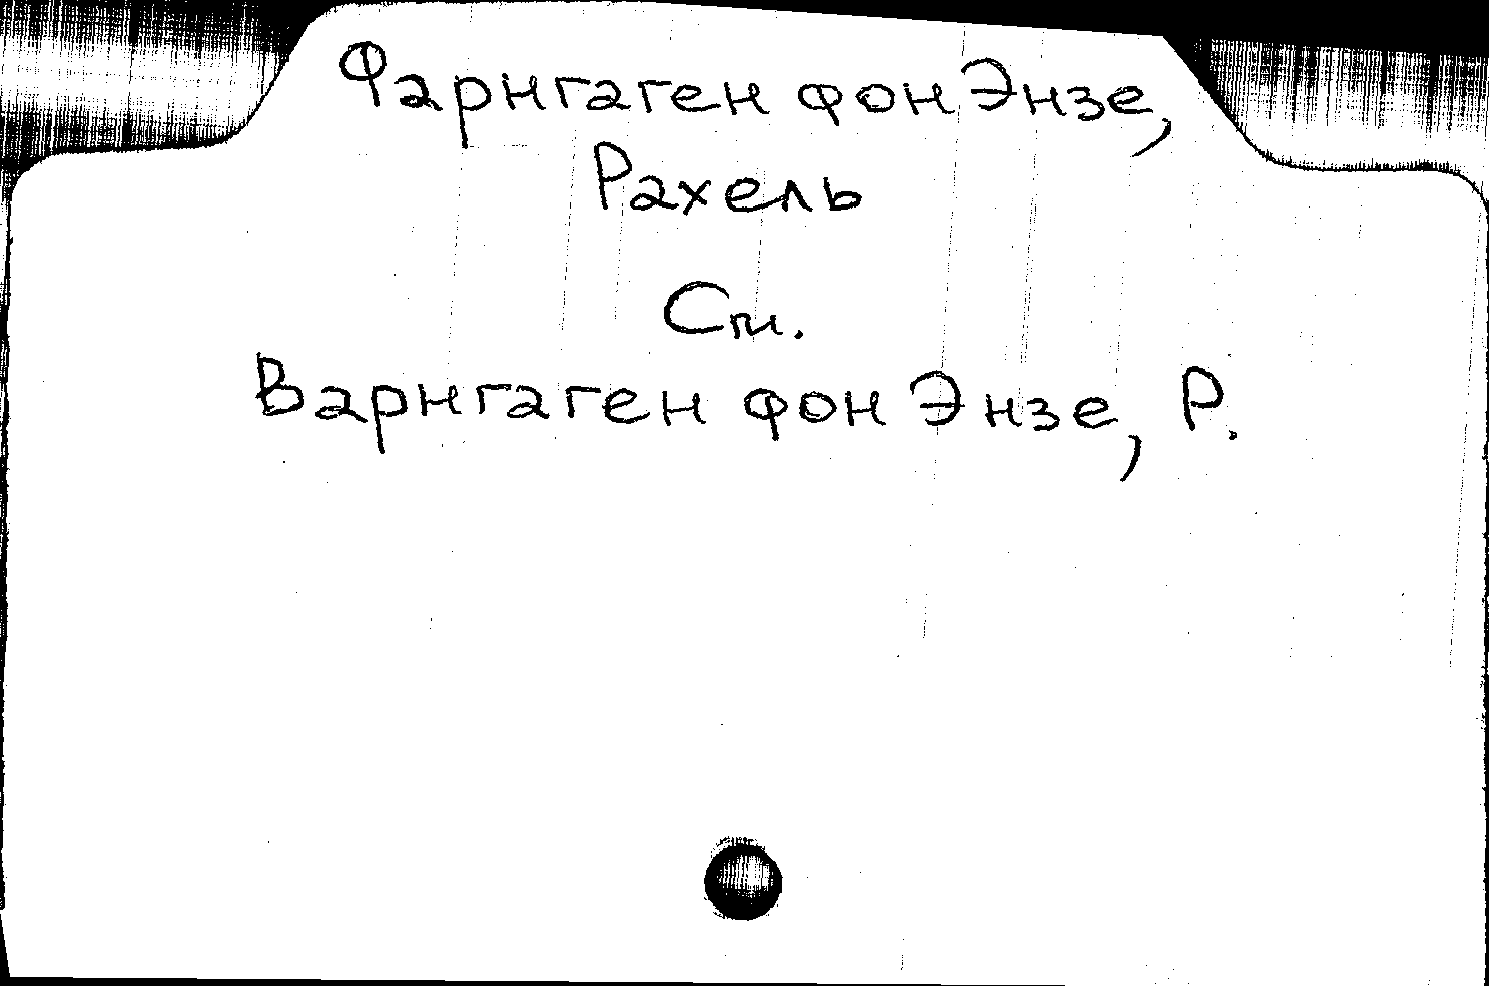 Фарнгаген фон Энзе,
Рахель
См.
Варнгаген фон Энзе, Р.